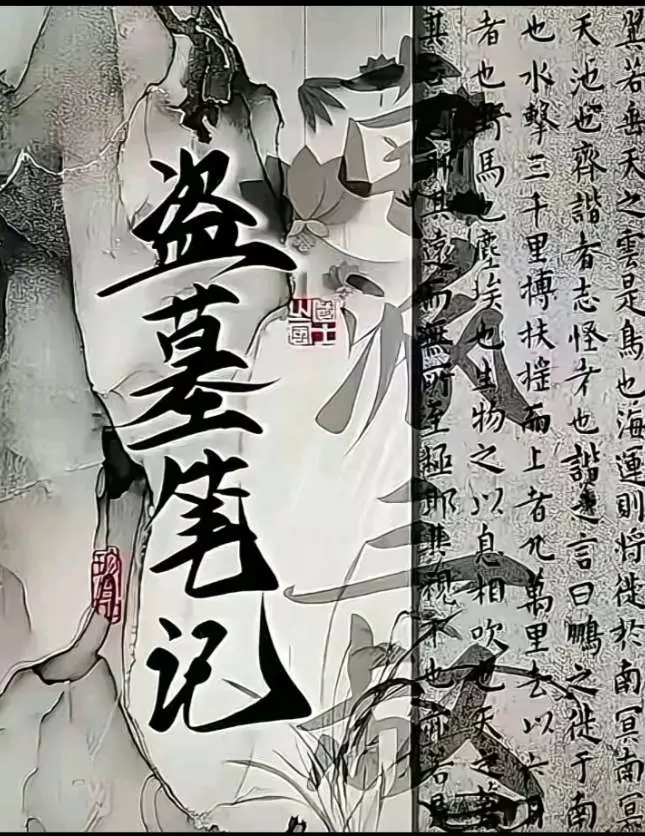 翼若垂天之雲是鳥也海運則將徙於南冥南冥
天池也齊諧者志怪者也諧之言曰鵬之徙于南
也水擊三千里搏扶搖而上者九萬里去以六月
者也野馬也塵埃也生物之以息相吹也天之蒼
其遠而無所至極耶其視下也亦若是
南派三叔
盗墓笔记